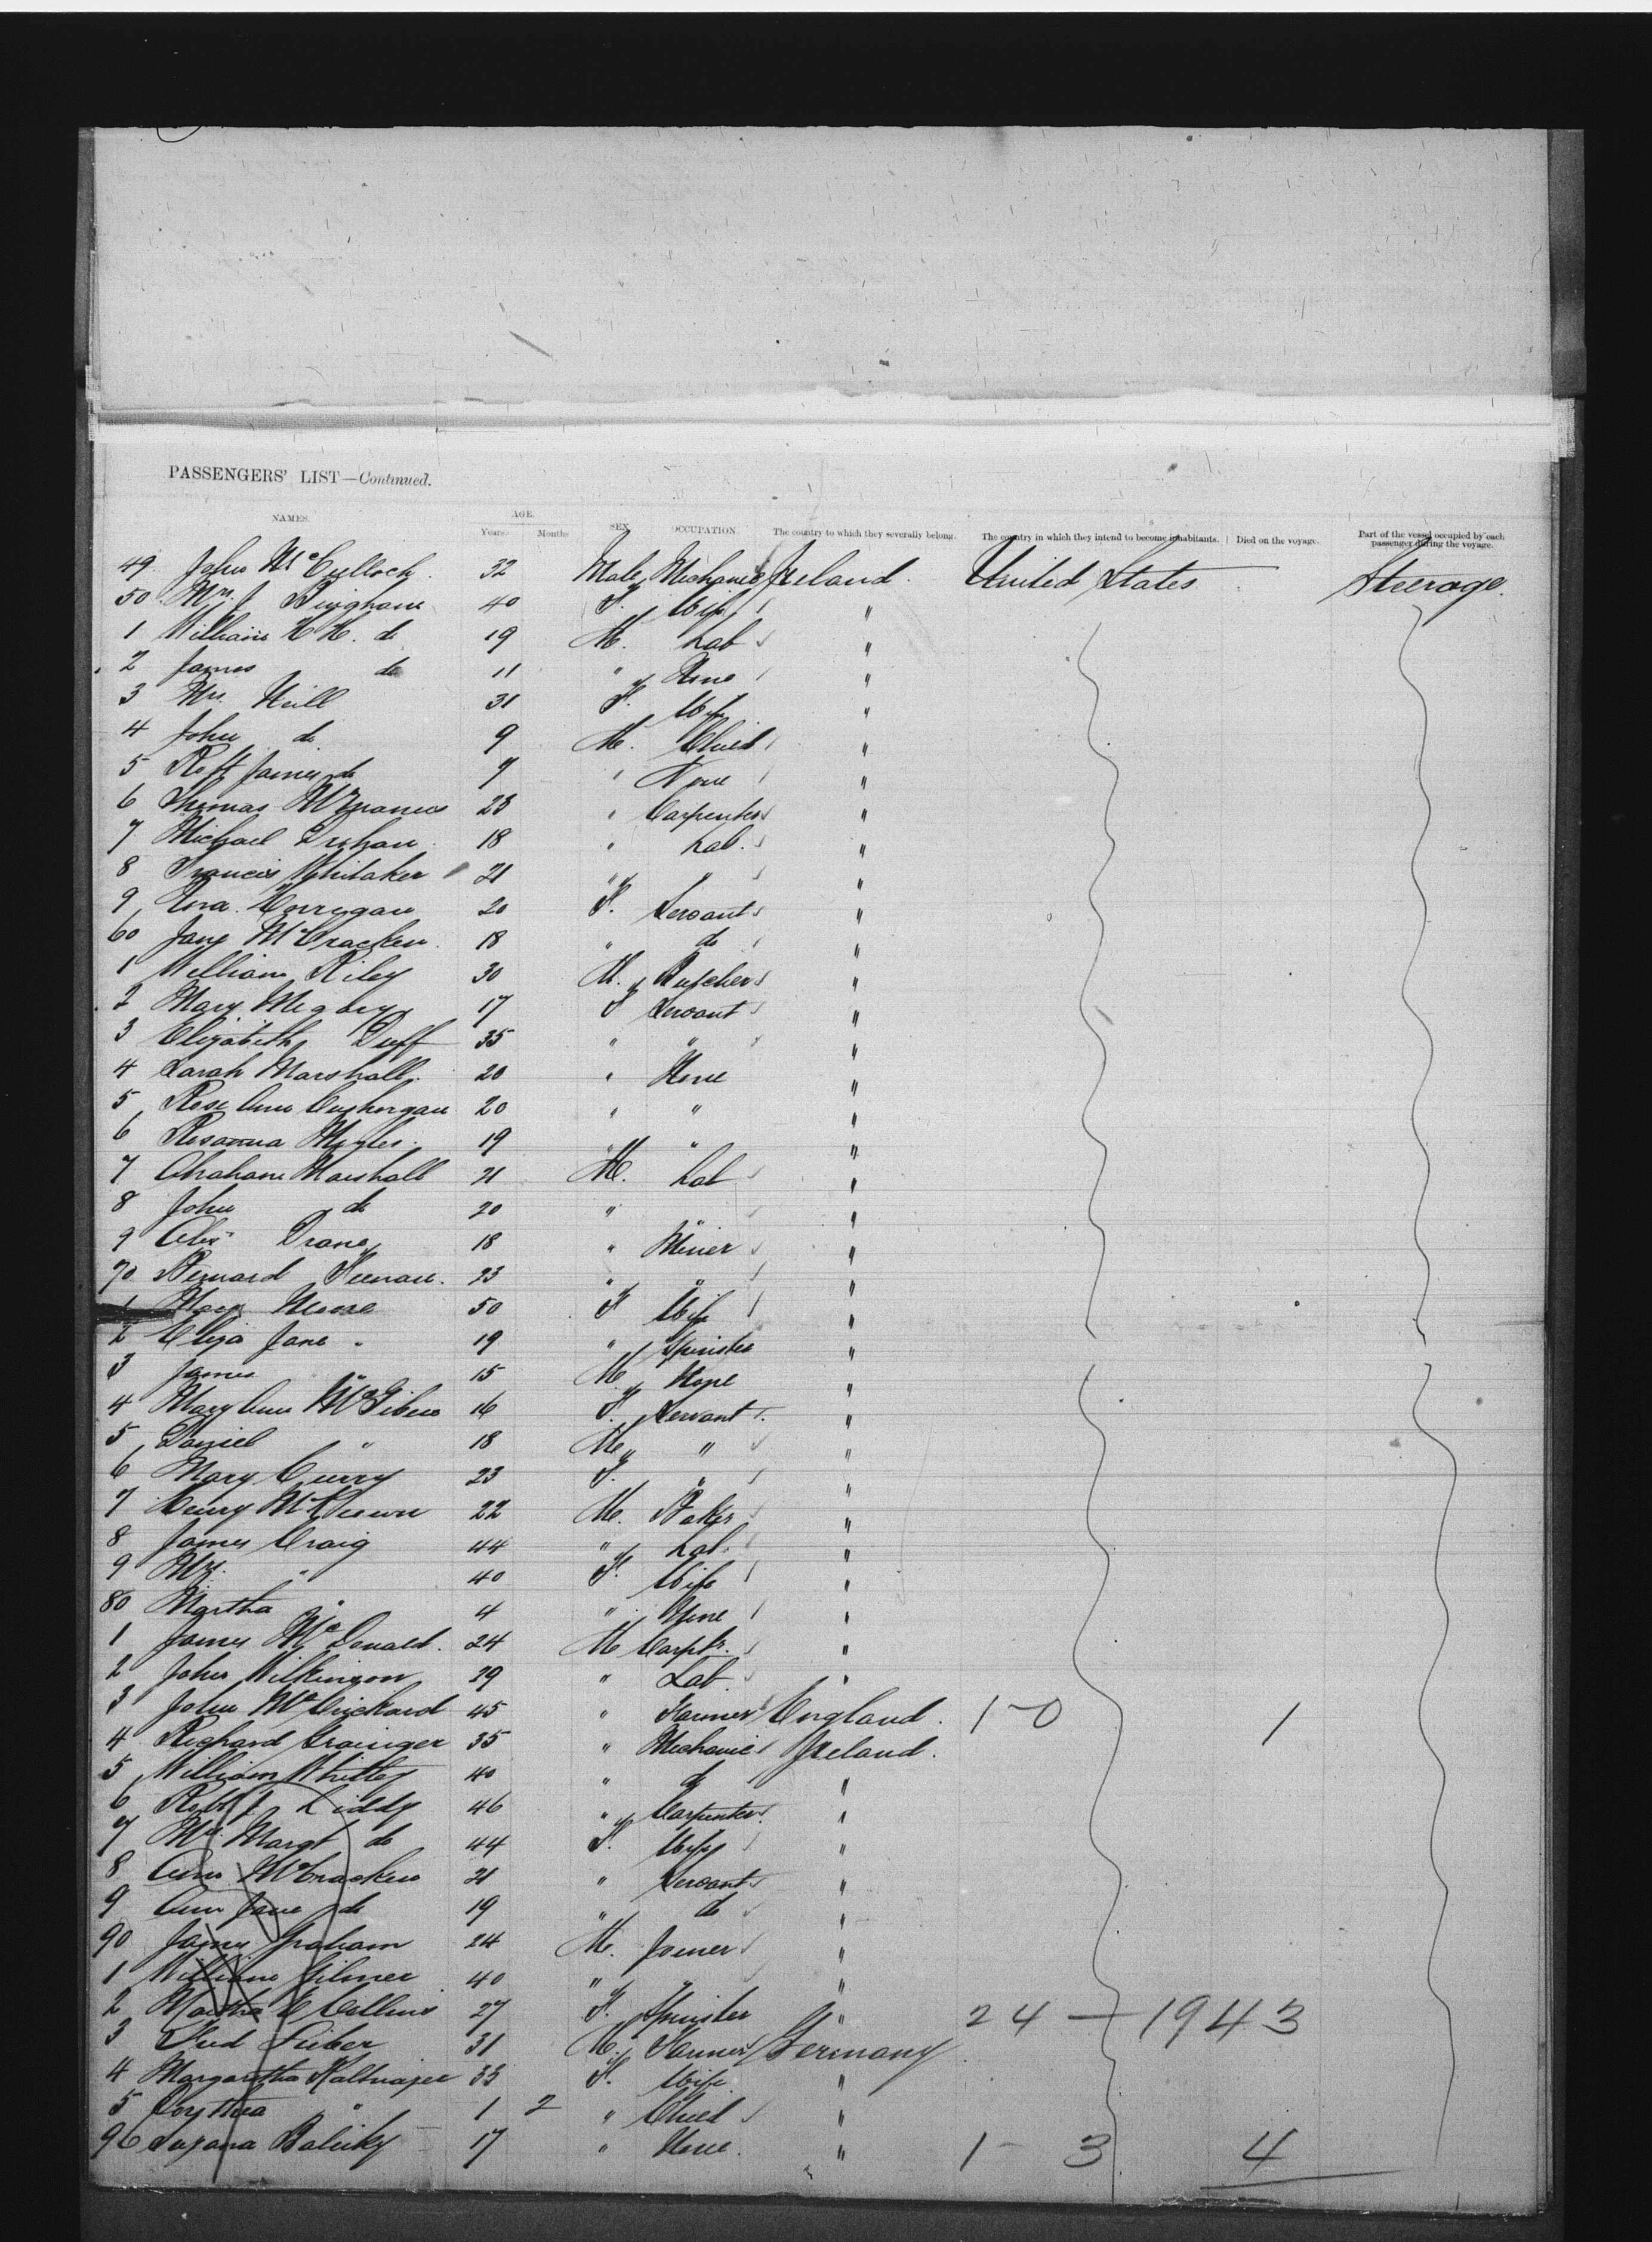 PASSENGERS' LIST—Continued.
NAMES. AGE. SEX OCCUPATION The country to which they severally belong. The country in which they intend to become inhabitants. Died on the voyage. Part of the vessel occupied by each passenger during the voyage.
Years Months
49 John McCullock 32 Male Mechanic Ireland. United States Steerage.
50 Mrs. J Bingham 40 F. Wife "
1 William H. do 19 M. Lab "
2 James do 11 " None "
3 Mrs. Neill 31 F. Wife "
4 John do 9 M. Child "
5 Robt James do 7 " None "
6 Thomas 23 " Carpenter "
7 Michael 18 " Lab. "
8 Francis Whitaker 21 " " "
9 Corrigan 20 F. Servant "
60 Jane McCracken 18 " do "
1 William Riley 30 M. Butcher "
2 Mary 17 F Servant "
3 Elizabeth Duff 35 " " "
4 Sarah Marshall 20 " None "
5 Rose Ann 20 " " "
6 Rosanna 19 " " "
7 Abraham Marshall 21 M. Lab "
8 John do 20 " "
9 Alex 18 " Miner "
70 Bernard 23 " " "
1 Mary 50 F Wife "
2 Eliza Jane " 19 " Spinster "
3 James " 15 M None "
4 Mary Ann 16 F. Servant "
5 Daniel " 18 M " "
6 Mary Curry 23 F. " "
7 Henry McKeown 22 M. Baker "
8 James Craig 44 " Lab. "
9 Mrs. " 40 F. Wife "
80 Martha " 4 " None "
1 James McDonald. 24 M Carptr. "
2 John Wilkinson 29 " Lab "
3 John 45 " Farmer England. 1-0 1
4 Richard Grainger 35 " Mechanic Ireland.
5 William Whitley 40 " do "
6 Robt J Liddy 46 " Carpenter "
7 Mrs. Margt do 44 F. Wife "
8 Ann McCracken 21 " Servant "
9 Ann Jane do 19 " do "
90 James Graham 24 M. Joiner "
1 William Gilmer 40 " " "
2 Martha Collins 27 F. Spinster " 24 — 1943
3 Fred 31 M. Farmer Germany
4 Margaretha 33 F. Wife "
5 " 1 2 " Child "
96 17 " None. " 1- 3 4